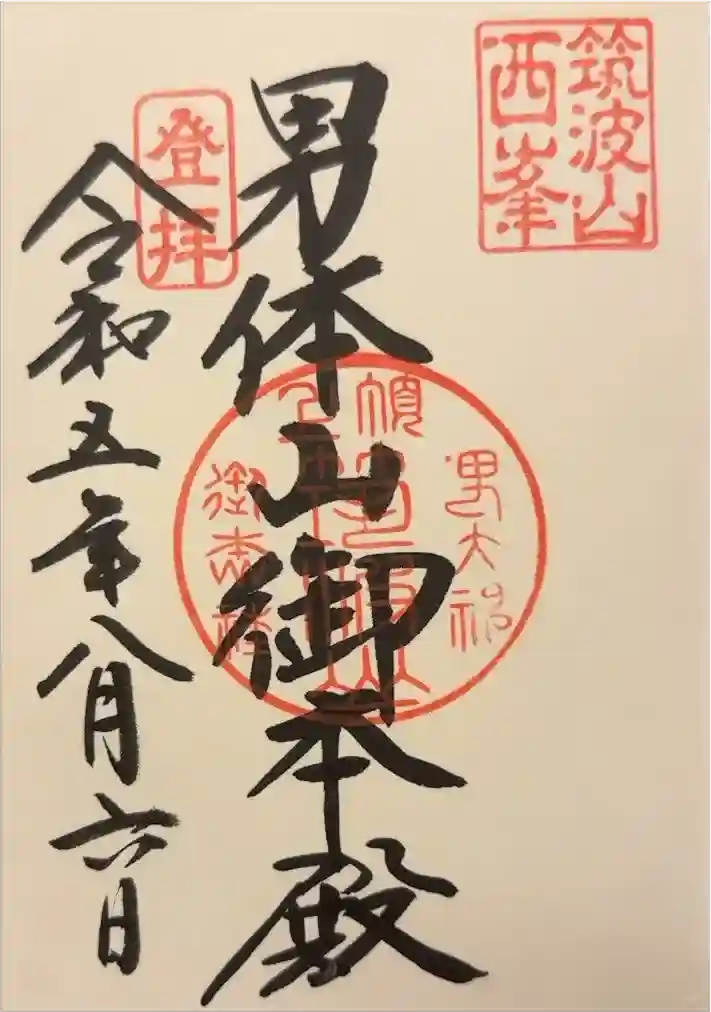 筑波山
西峯
男体山御本殿
登拝
令和五年八月六日